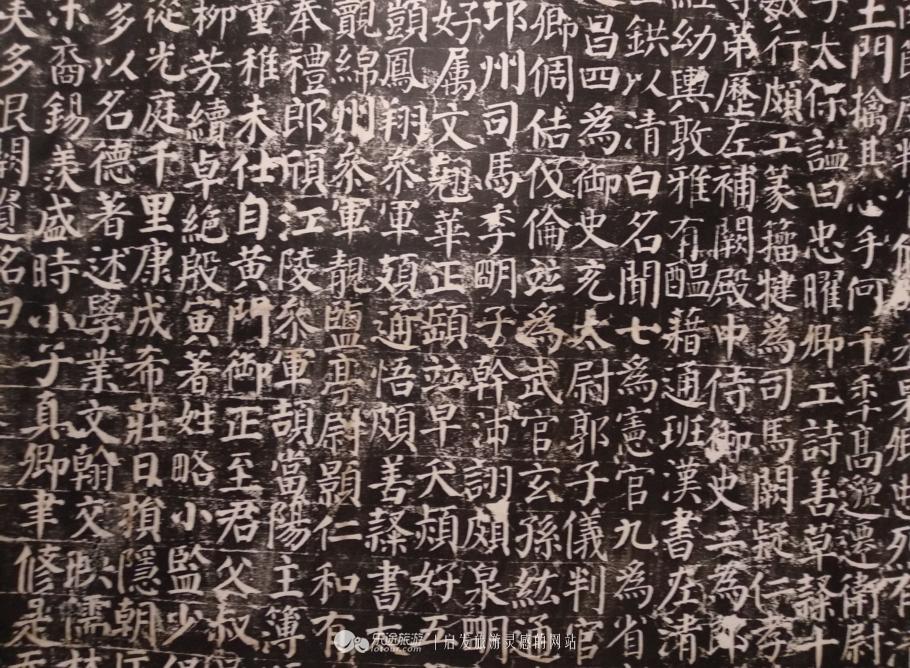 土門擒其心手何千年高邈遷衛尉
子太保謚曰忠曜卿工詩善草隸十
數行頗工篆籀犍為司馬闕疑仁孝
弟歷左補闕殿中侍御史三為郎
經幼輿敦雅有醞藉通班漢書左清
鉷以清白名聞七為憲官九為省
昌四為御史充太尉郭子儀判官
卿倜佶伋倫並為武官玄孫紘通
邛州司馬季明子幹沛詡頗泉明
好属文翹華正頵並早夭頰好五
顗鳳翔參軍頍通悟頗善隸書
覿綿州參軍靚鹽亭尉顥仁和有
奉禮郎江陵參軍頡當陽主簿
童稚未仕自黃門御正至君父叔
柳芳續卓絕殷寅著姓略小監少
從光庭千里康成希莊日損隱朝
多以名德著述學業文翰交映儒
裔錫羨盛時小子真卿聿修是
美多恨闕遺名曰
乐途旅游 lotour.com | 启发旅游灵感的网站